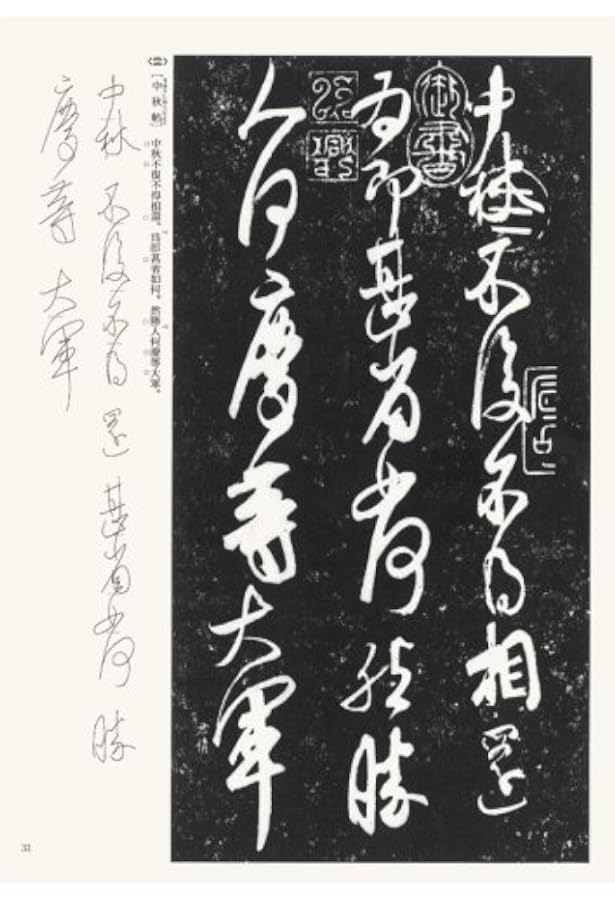 中秋不復不得相還
為即甚省如何然勝
人何慶等大軍
御書
【中秋帖】中秋不復不得相還。爲卽甚省如何。然勝人何慶等大軍。
中秋 不復不得 還 甚省如何 勝
慶等 大軍
31